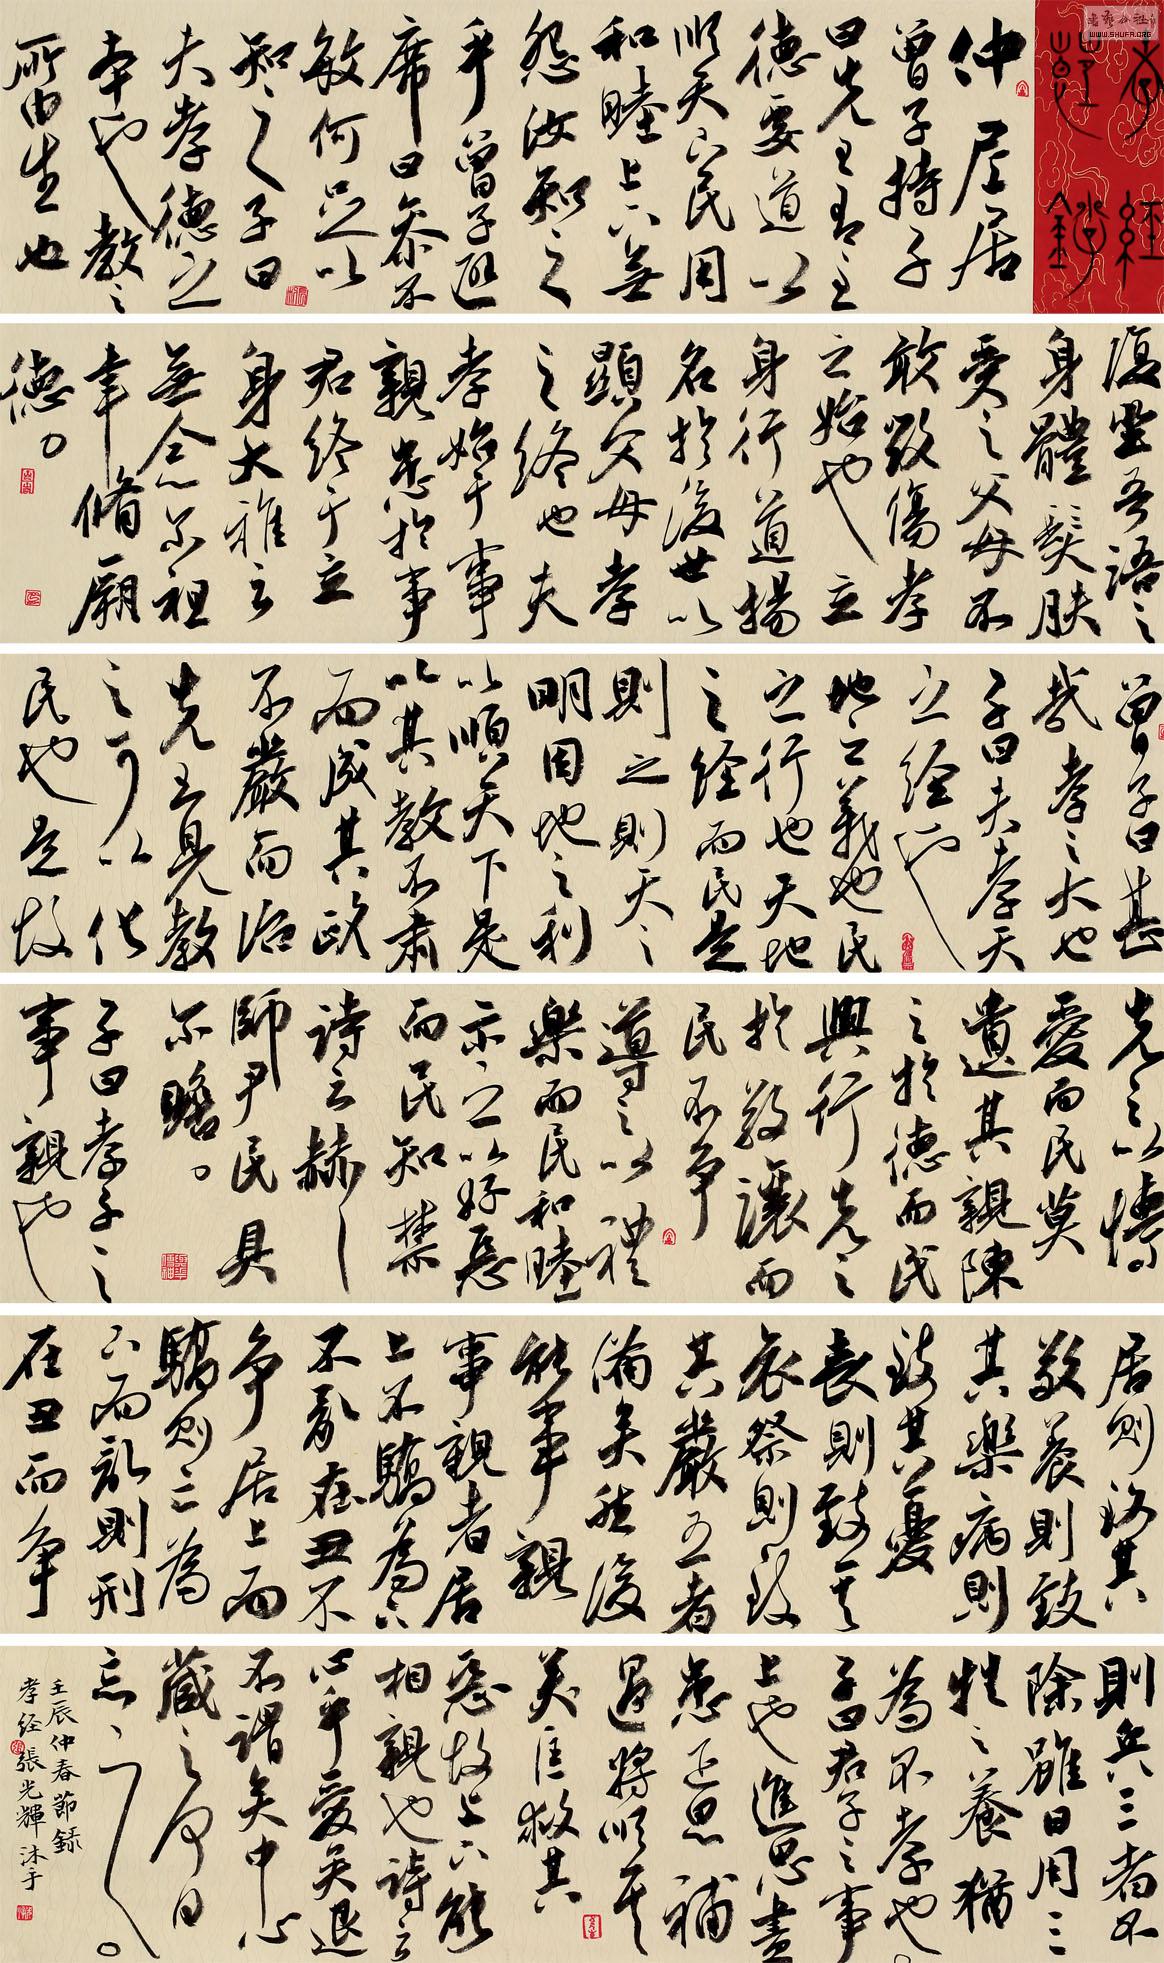 孝經
節錄
书艺公社
WWW.SHUFA.ORG
仲尼居
曾子持子
曰先王有至
德要道以
順天下民用
和睦上下無
怨汝知之
乎曾子避
席曰參不
敏何足以
知之子曰
夫孝德之
本也教之
所由生也
復坐吾語之
身體髮膚
受之父母不
敢毀傷孝
之始也立
身行道揚
名於後世以
顯父母孝
之終也夫
孝始于事
親忠於事
君終于立
身大雅云
無念爾祖
聿脩厥
德
曾子曰甚
哉孝之大也
子曰夫孝天
之經也
地之義也民
之行也天地
之經而民是
則之則天之
明因地之利
以順天下是
以其教不肅
而成其政
不嚴而治
先王見教
之可以化
民也是故
先之以博
愛而民莫
遺其親陳
之於德而民
興行先之
於敬讓而
民不爭
導之以禮
樂而民和睦
示之以好惡
而民知禁
詩云赫赫
師尹民具
爾瞻
子曰孝子之
事親也
居則致其
敬養則致
其樂病則
致其憂
喪則致其
哀祭則致
其嚴五者
備矣然後
能事親
事親者居
上不驕為下
不亂在丑不
爭居上而
驕則亡為
下而亂則刑
在丑而爭
則兵三者不
除雖日用三
牲之養猶
為不孝也
子曰君子之事
上也進思盡
忠退思補
過將順其
美匡救其
惡故上下能
相親也詩云
心乎愛矣退
不謂矣中心
藏之何日
忘之
壬辰仲春節錄
孝經張光輝沐手